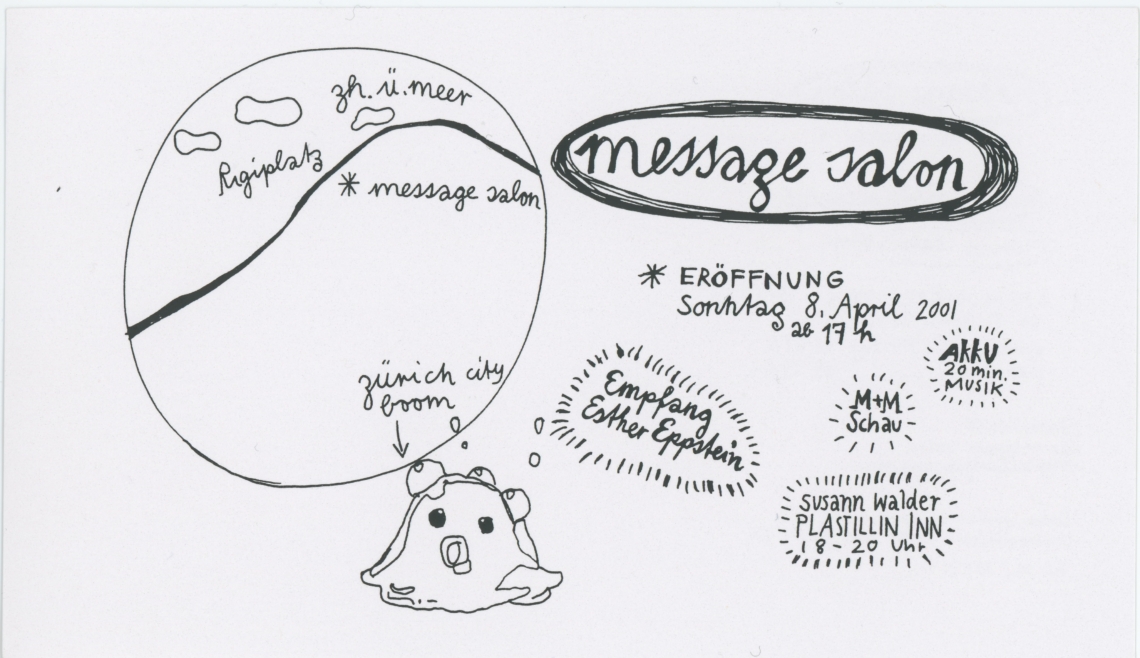 zh. ü. meer
Rigiplatz
* message salon
zürich city
boom
message salon
* ERÖFFNUNG
Sonntag 8. April 2001
ab 17 h
AKKU
20 min.
MUSIK
M+M
Schau
Empfang
Esther Eppstein
susann walder
PLASTILLIN INN
18 - 20 Uhr